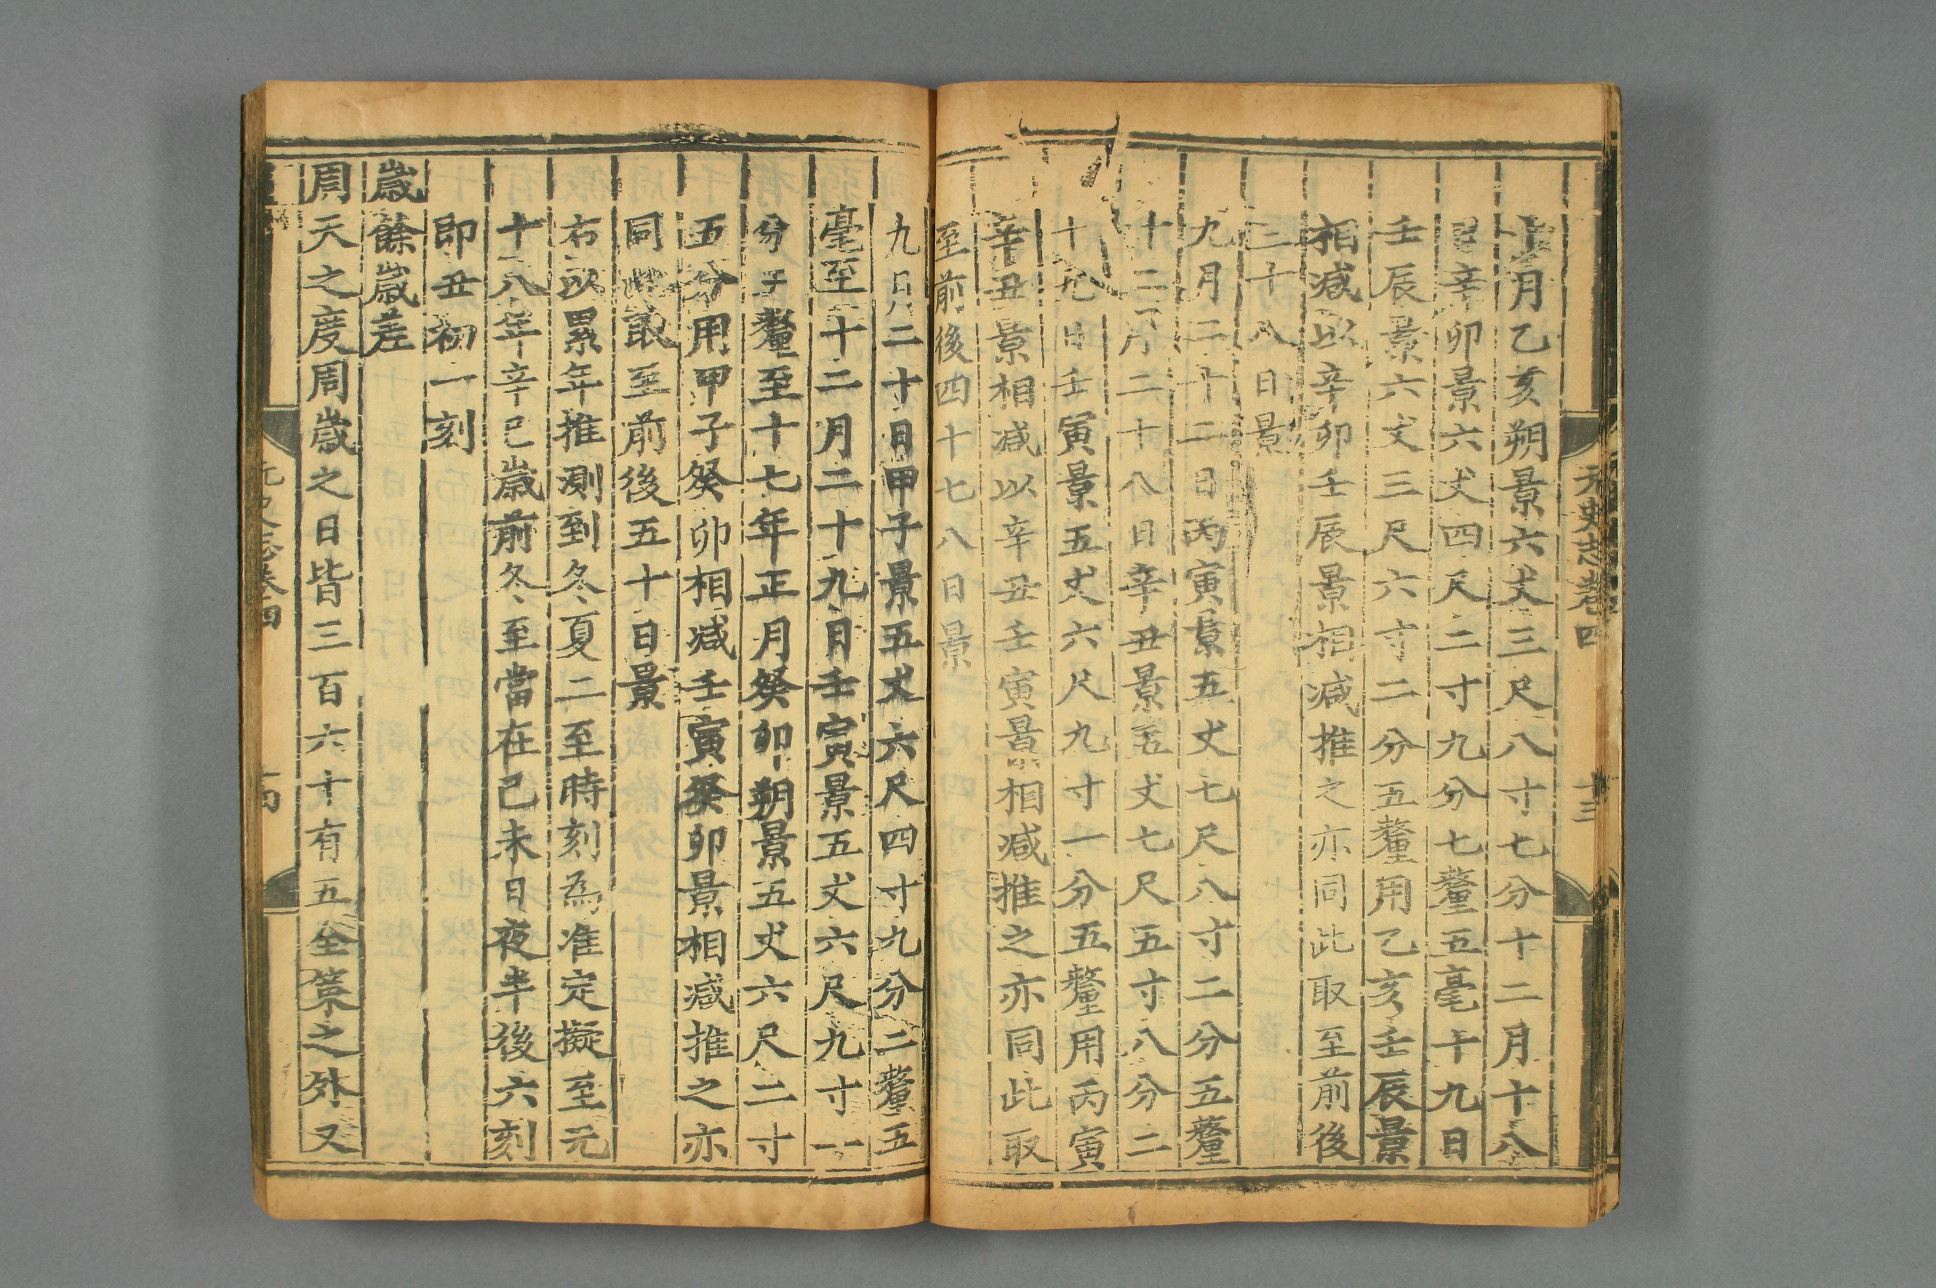 元史志卷四
十三
十月乙亥朔景六丈三尺八寸七分十二月十八
日辛卯景六丈四尺二寸九分七釐五毫十九日
壬辰景六丈三尺六寸二分五釐用乙亥壬辰景
相减以辛卯壬辰景相减推之亦同此取至前後
三十八日景
九月二十二日丙寅景五丈七尺八寸二分五釐
十二月二十八日辛丑景五丈七尺五寸八分二
十九日壬寅景五丈六尺九寸一分五釐用丙寅
辛丑景相减以辛丑壬寅景相减推之亦同此取
至前後四十七八日景
九月二十日甲子景五丈六尺四寸九分二釐五
毫至十二月二十九日壬寅景五丈六尺九寸一
分五釐至十七年正月癸卯朔景五丈六尺二寸
五分用甲子癸卯相减壬寅癸卯景相减推之亦
同此取至前後五十日景
右以累年推測到冬夏二至時刻為准定擬至元
十八年辛巳歲前冬至當在己未日夜半後六刻
即丑初一刻
歲餘歲差
周天之度周歲之日皆三百六十有五全策之外又
元史志卷四
十四